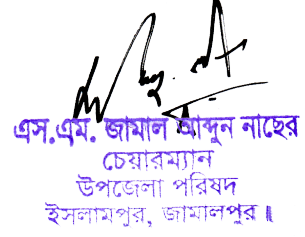 এস.এম. জামাল আব্দুন নাছের
চেয়ারম্যান
উপজেলা পরিষদ
ইসলামপুর, জামালপুর।